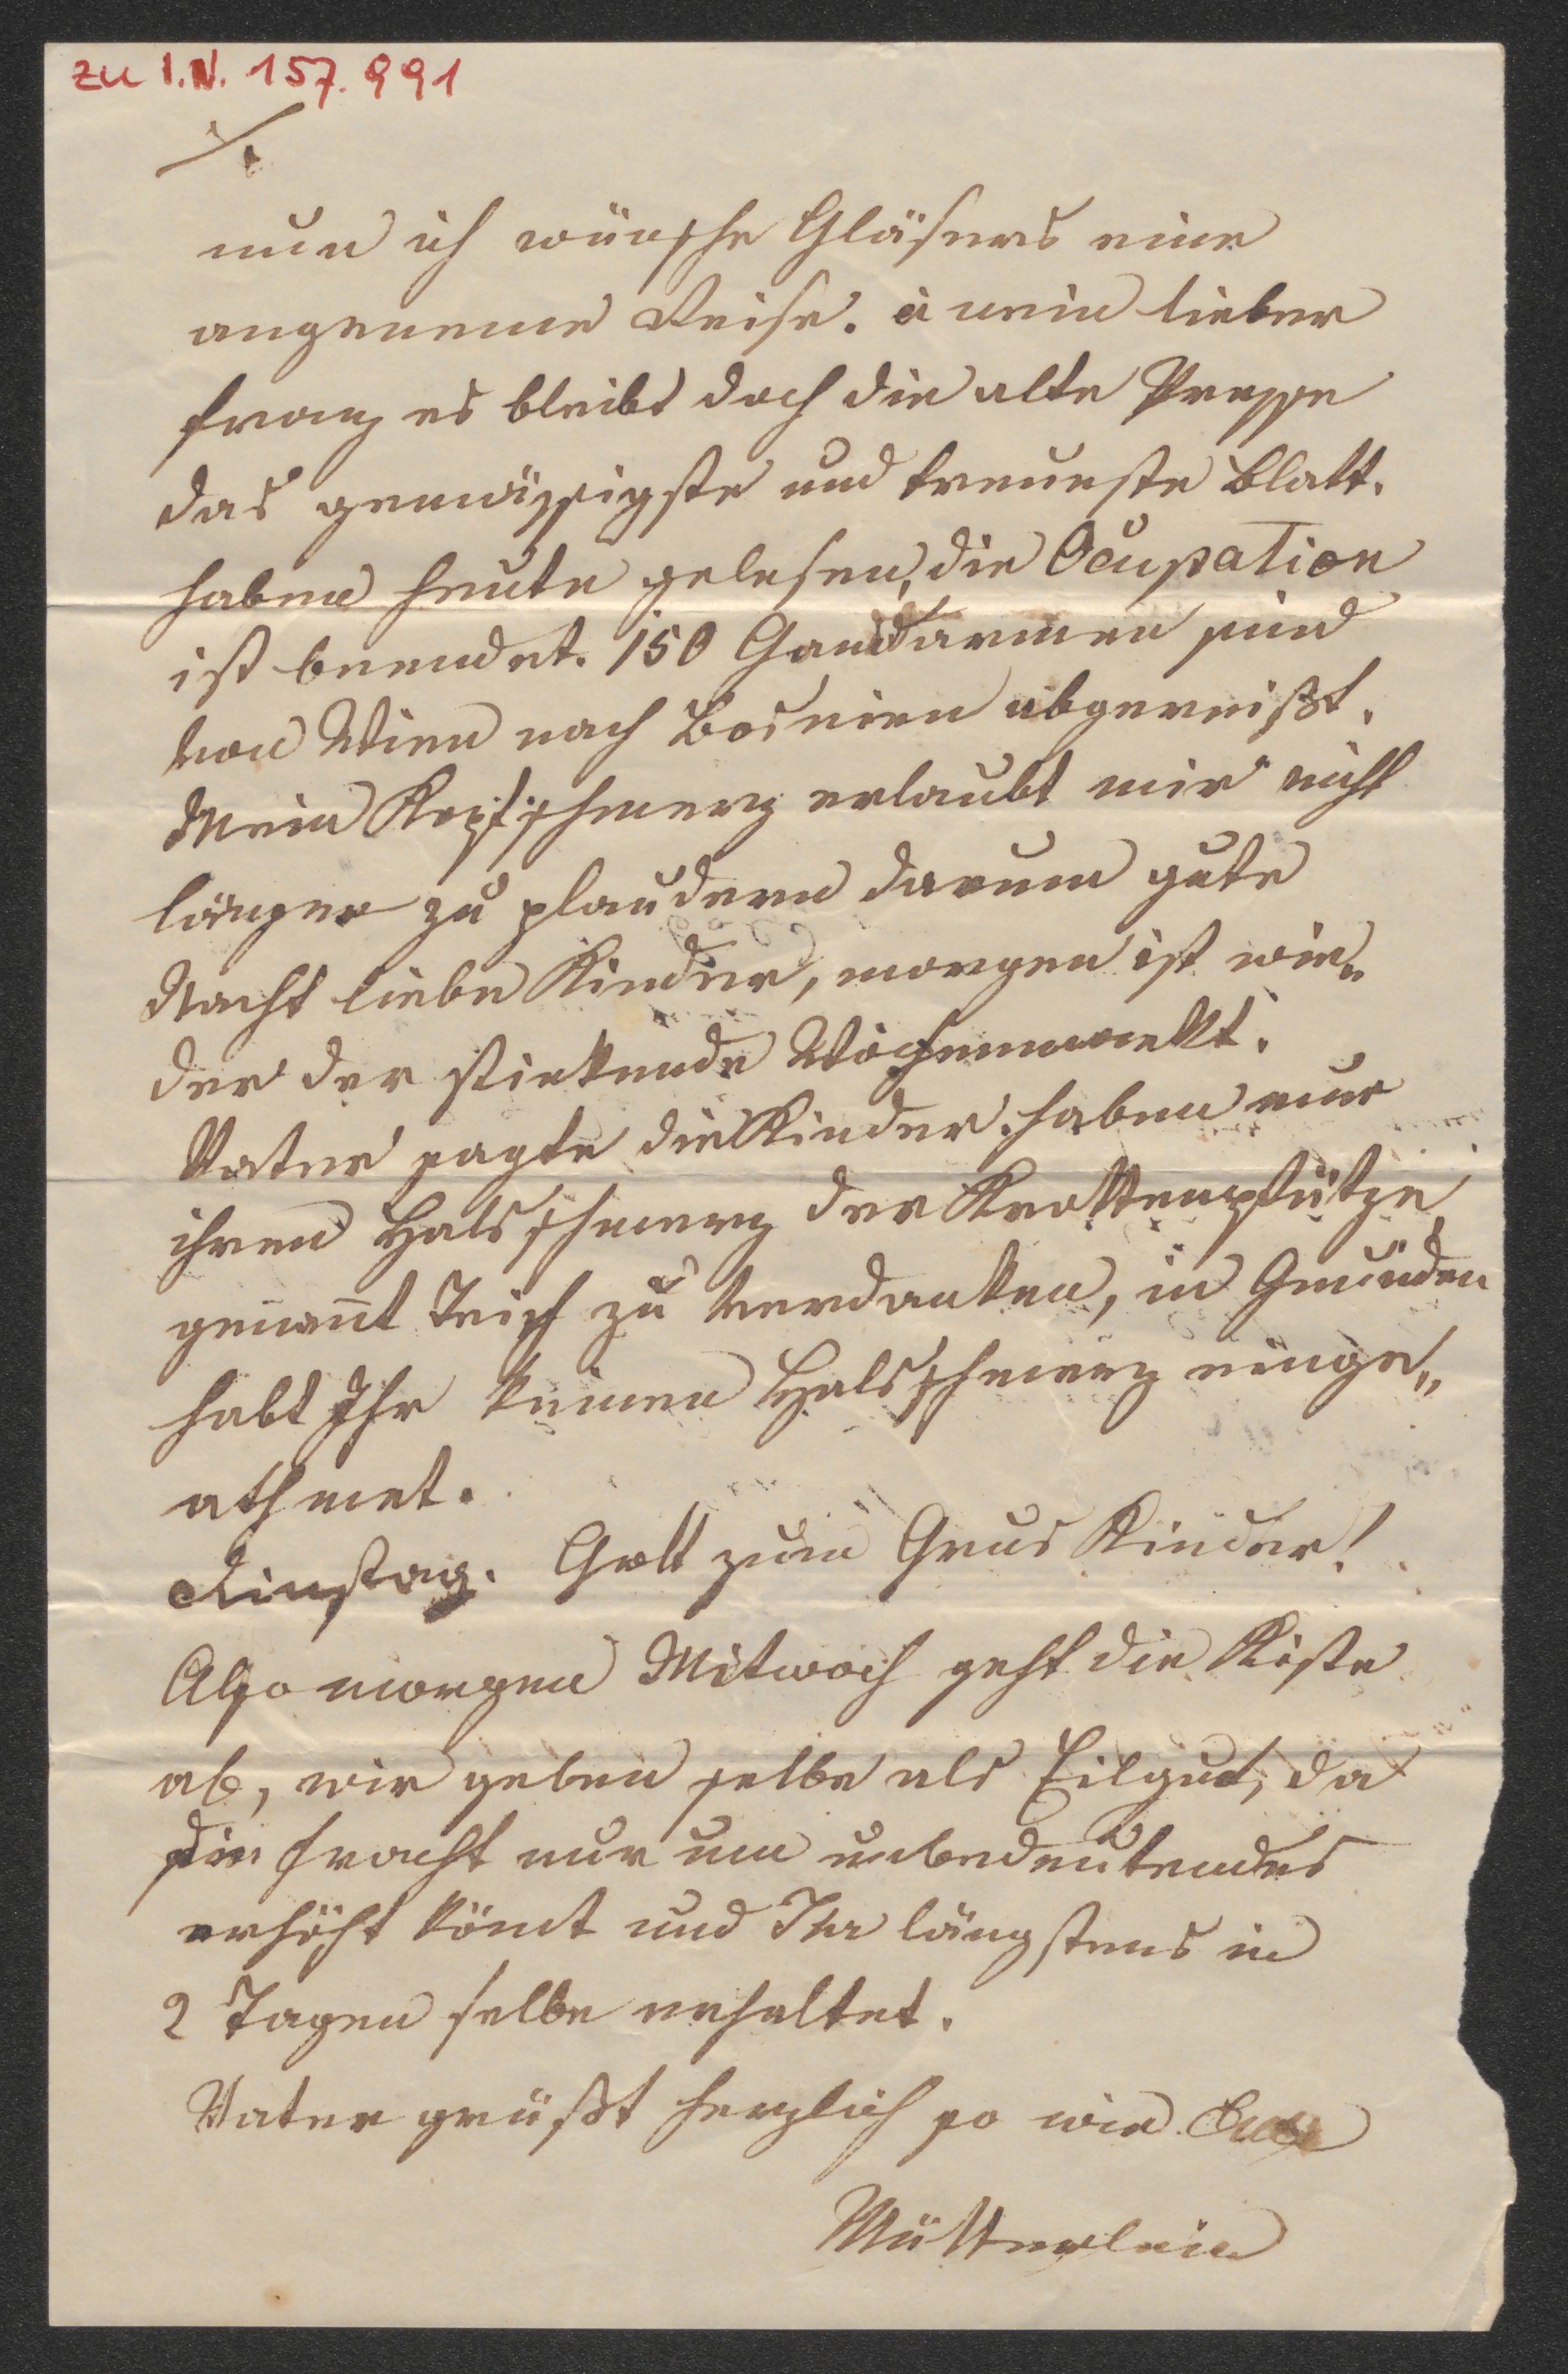 zu I.N. 157.991
./.
nun ich wünsche Gläsers eine
angeneme Reise. a nein lieber
Franz es bleibt doch die alte Presse
das gemässigste und treueste Blatt.
haben heute gelesen, die Ocupation
ist beendet. 150 Gandarmen sind
von Wien nach Bosnien abgereißt.
Mein Kopfschmerz erlaubt mir nicht
länger zu plaudern darum gute
Nacht liebe Kinder, morgen ist wie„
der der stinkende Wochenmarkt.
Vater sagte die Kinder haben nur
ihren Halsschmerz der Krottenpfütze
genannt Teich zu verdanken, in Gmünden
habt Ihr keinen Halsschmerz einge„
athmet.
Dinstag. Gott zum Grus Kinder!
Also morgen Mitwoch geht die Kiste
ab, wir geben selbe als Eilgut, da
die Fracht nur um unbedeutendes
erhöht kömt und Ihr längstens in
2 Tagen selbe erhaltet.
Vater grüßt herzlich so wie Eure
Mütterlein